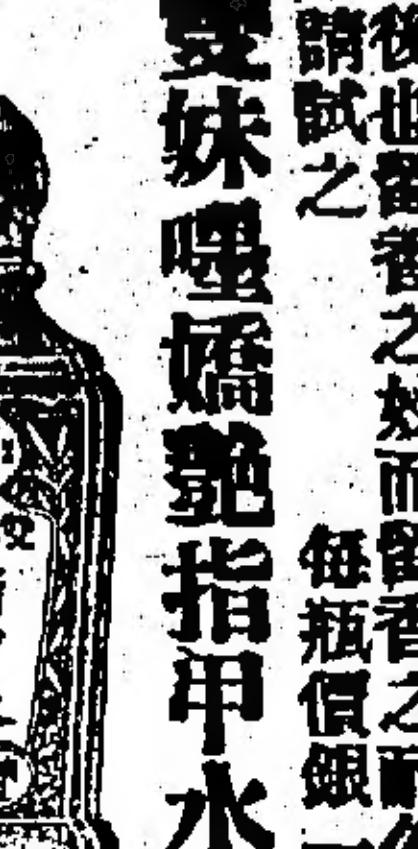 後也留香之妙而留香之耐
請試之　每瓶價銀一
雙妹嘜嬌艷指甲水